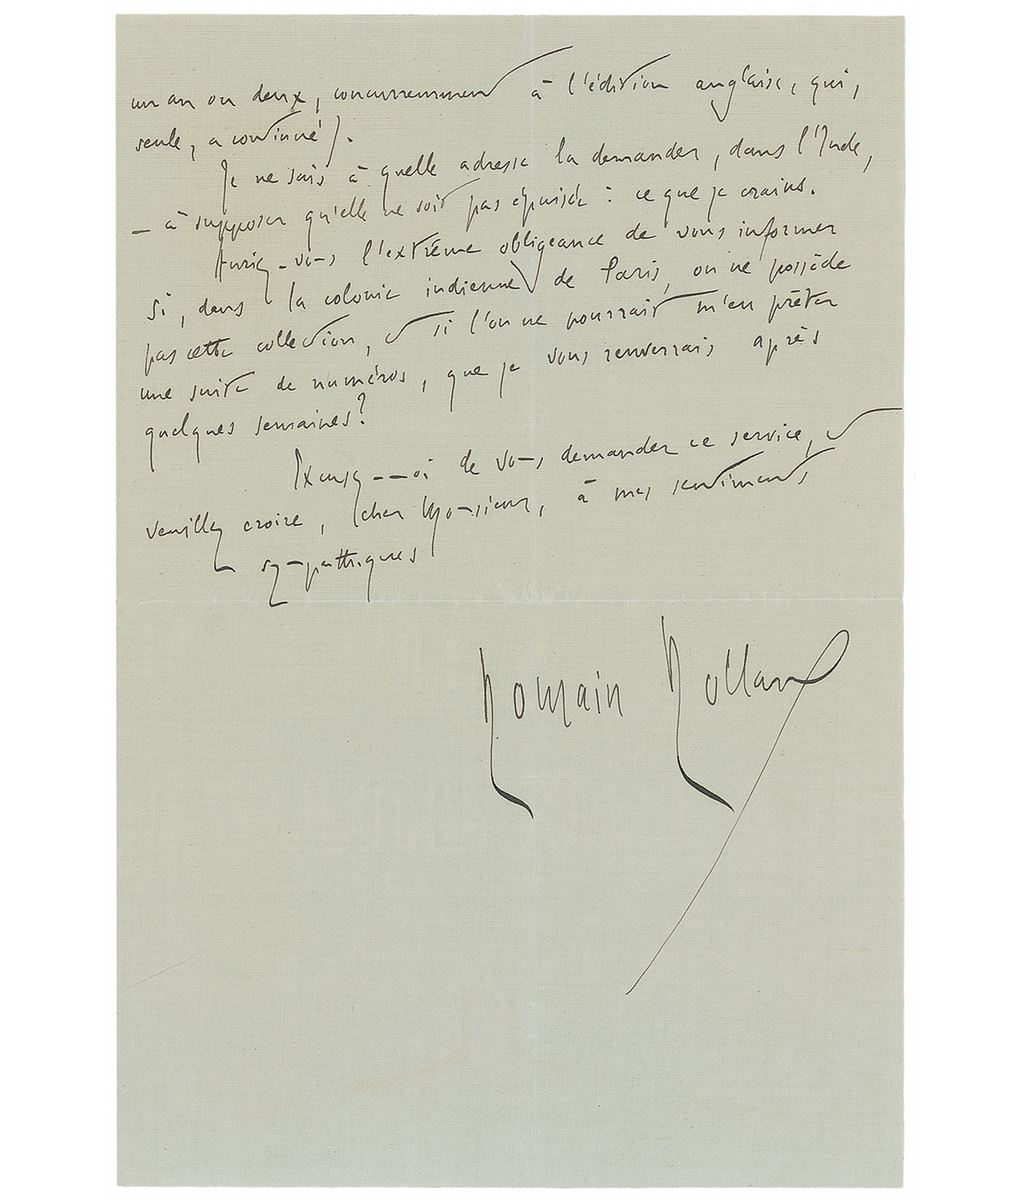 un an ou deux, concurremment à l'édition anglaise, qui,
seule, a continué).
Je ne sais à quelle adresse la demander, dans l'Inde,
– à supposer qu'elle ne soit pas épuisée : ce que je crains.
Auriez-vous l'extrême obligeance de vous informer
si, dans la colonie indienne de Paris, on ne possède
pas cette collection, et si l'on ne pourrait m'en prêter
une suite de numéros, que je vous renverrais après
quelques semaines?
Excusez-moi de vous demander ce service, et
veuillez croire, cher Monsieur, à mes sentiments
sympathiques
Romain Rolland